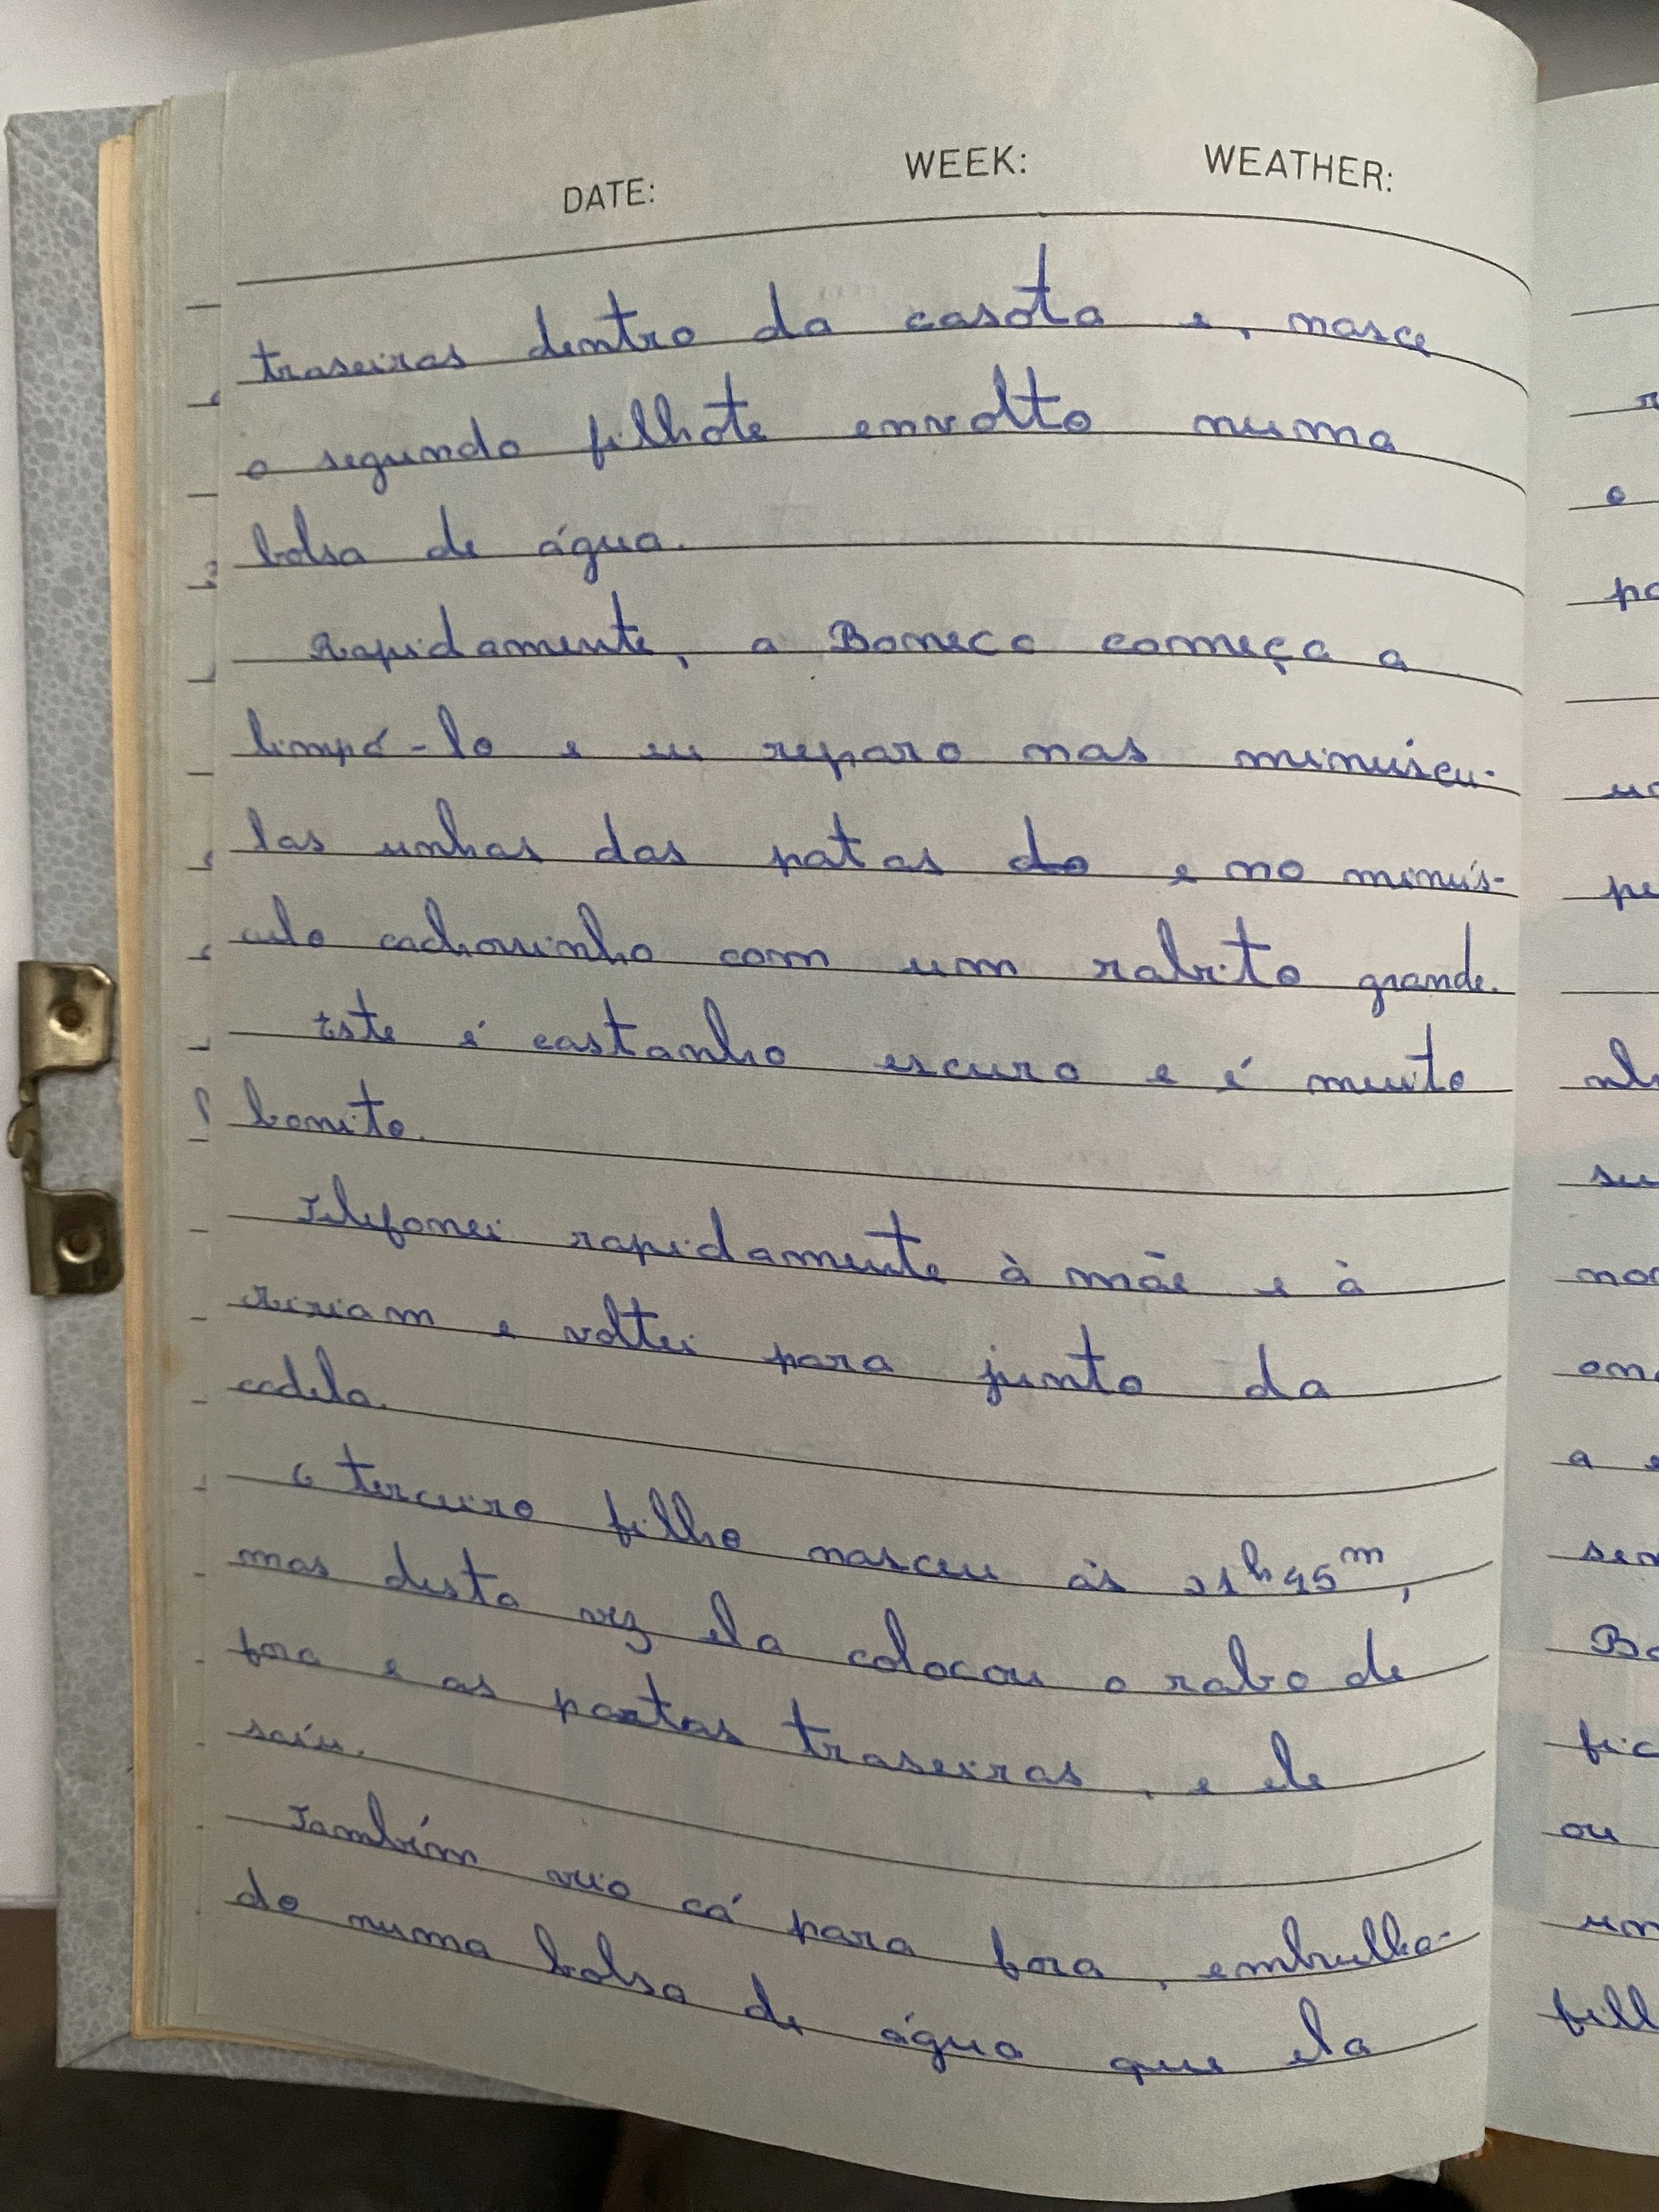 DATE: WEEK: WEATHER:
traseiras dentro da casota e, nasce
o segundo filhote envolto numa
bolsa de água.
Rapidamente, a Boneca começa a
limpá-lo e eu reparo nas minúscu-
las unhas das patas do e no minús-
culo cachorrinho com um rabito grande.
Este é castanho escuro e é muito
bonito.
Telefonei rapidamente à mãe e à
e voltei para junto da
cadela.
O terceiro filho nasceu às 21h45m,
mas desta vez ela colocou o rabo de
fora e as patas traseiras, e ele
saíu.
Também veio cá para fora, embrulha-
do numa bolsa de água que ela